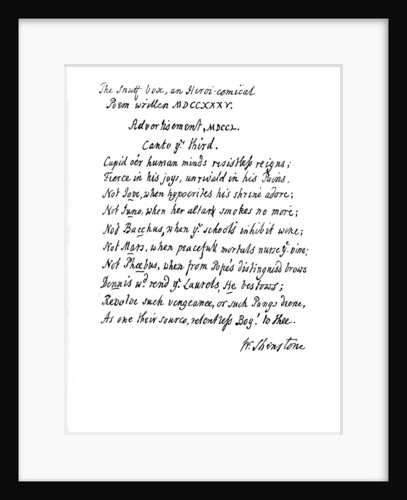 The Snuff box, an Heroi-comical
Poem written MDCCXXXV.
Advertisement, MDCCL.
Canto yͤ third.
Cupid o'er human minds resistless reigns;
Fierce in his joys, unrivald in his Pains.
Not Jove, when hypocrites his shrine adore;
Not Juno, when her altars smokes no more;
Not Bacchus, when yͤ schools inhibit wine;
Not Mars, when peacefull mortals nurse yͤ vine;
Not Phœbus, when from Pope's distinguisd brows
Dennis wᵈ rend yͤ Laurels, He bestows;
Revolve such vengeance, or such Pangs
As one their source, relentless Boy! to thee.
W. Shenstone